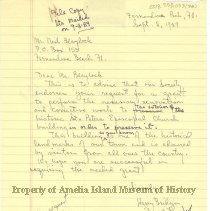 File Copy
Mailed
9-8-89
Fernandina Bch, Fl.
Sept. 8, 1989
Mr. Neil
P.O. Box 154
Fernandina Beach, Fl.
Dear Mr.
This is to advise that our Society
endorses your request for a grant
to perform the necessary renovation
and restorative work to the exterior of the
historic St. Peters Episcopal Church
building in order to preserve it.
This building is one of the historical
land marks of our town and is admired
by visitors from all over the country.
We hope you are successful in
acquiring the needed grant.
Property of Amelia Island Museum of History